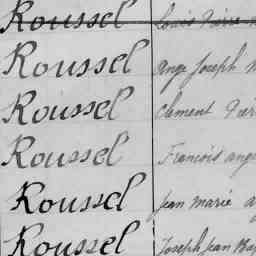 Roussel Louis Pierre
Roussel Ange Joseph
Roussel Clement
Roussel Francois
Roussel Jean marie
Roussel Joseph Jean